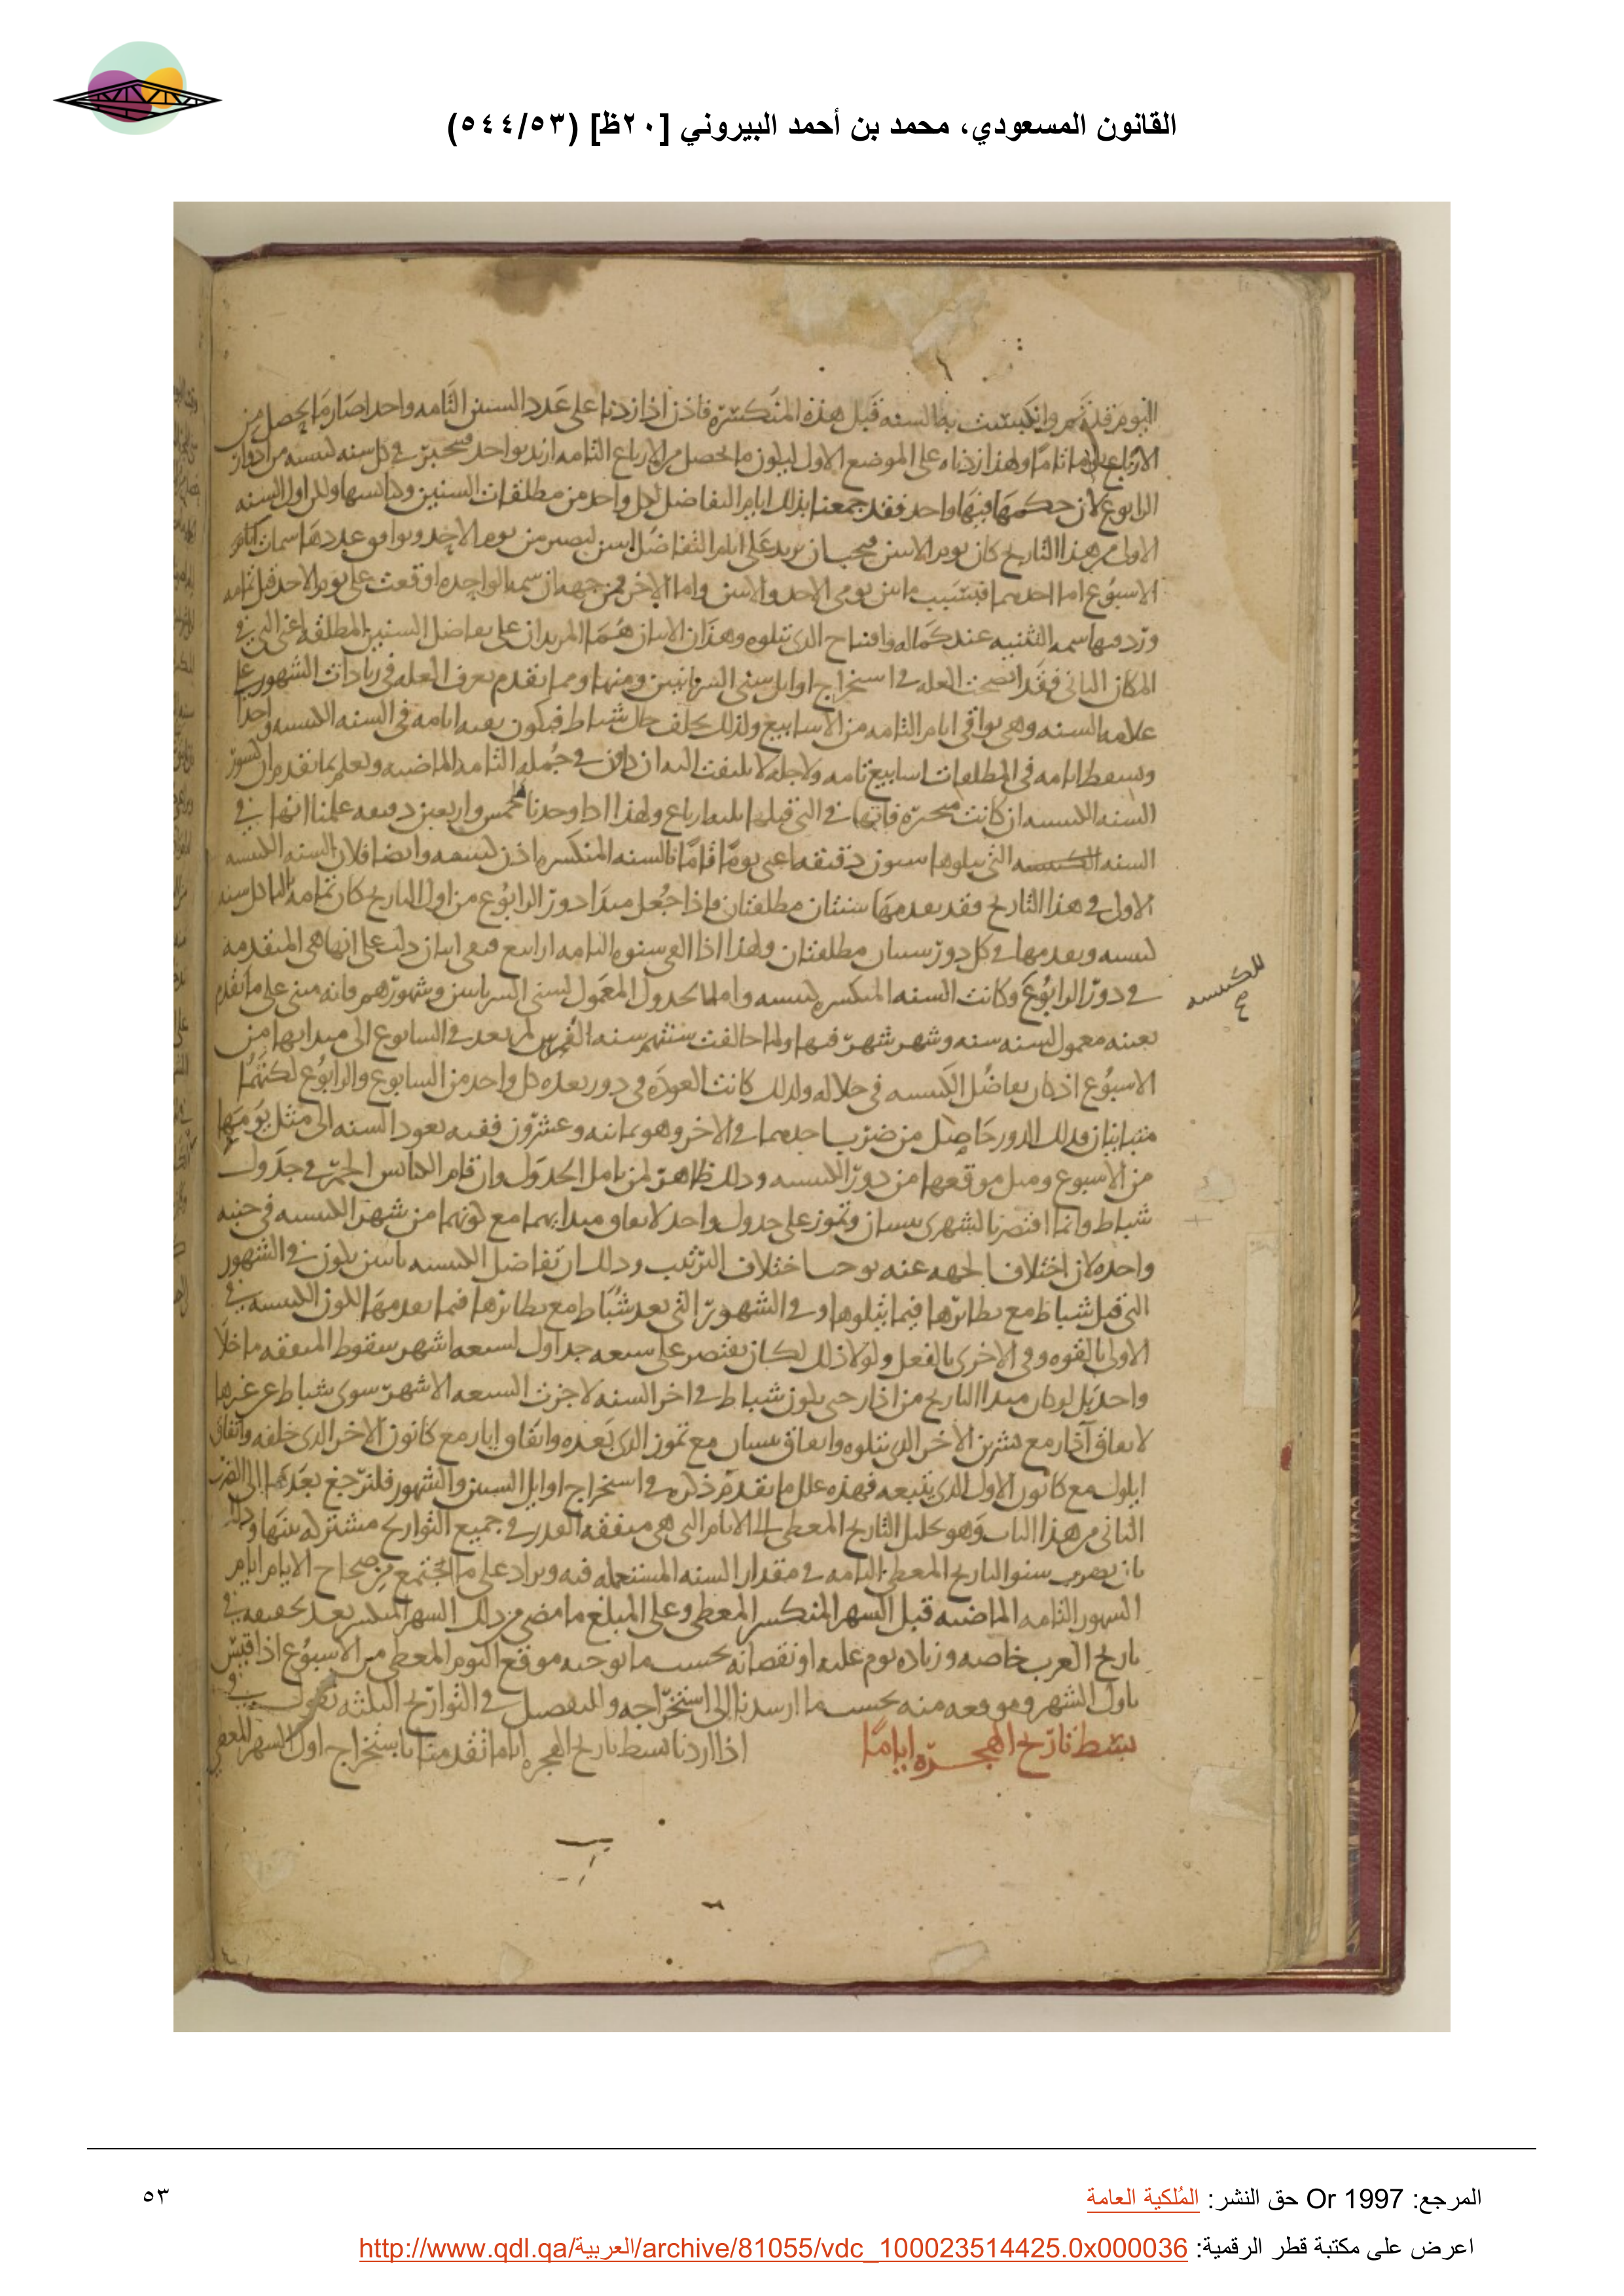 القانون المسعودي، محمد بن أحمد البيروني [٢٠ظ] (٥٤٤/٥٣)
اليوم قد تم وانكبست به السنه قبل هذه المنكسرة فاذن اذا زدنا على عدد السنين التامه واحدا صار ما يحصل من
الارباع تاما ولهذا زدناه على الموضع الاول ليكون ما يحصل من الارباع التامه ازيد بواحد في كل سنه كبيسه من ادوار
الرابوع لان حكمها فيها واحد فقد جمعنا بذلك ايام التفاضل لكل واحد من مطلقات السنين وكبائسها ولان اول السنه
الاولى من هذا التاريخ كان يوم الاثنين فيجب ان يزيد على ايام التفاضل اثنين ليصير من يوم الاحد ويوافق عددها سمات ايام
الاسبوع اما احدهما فبسبب ما بين يومى الاحد والاثنين واما الاخر فمن جهه ان سمه الواحده اوقعت على يوم الاحد قبل تمامه
سمه التثنيه عند كماله وافتتاح الذى يتلوه وهذان الاثنان هما المزيدان على تفاضل السنين المطلقه اعنى التي في
المكان الثانى فقد اتضحت العله في استخراج اوايل سنى السريانيين ومنها ومما تقدم يعرف العله في زيادات الشهور على
علامه السنه وهى بواقى ايام التامه من الاسابيع ولذلك يخلف حال شباط فيكون بقيه ايامه في السنه الكبيسه واحدا
ويسقط ايامه في المطلقات اسابيع تامه ولاجله لا يلتفت اليه ان كان في جمله التامه الماضيه ويعلم بما تقدم ان كسور
السنه الكبيسه ان كانت منجبرة فانها في التى قبلها ثلثه ارباع ولهذا اذا وجدنا خمس واربعين دقيقه علمنا انها في
السنه التى يتلوها ستون دقيقه اعنى يوما تاما فالسنه المنكسره اذن كبيسه وايضا فلان السنه الكبيسه
الاولى في هذا التاريخ فقد يقدمها سنتان مطلقتان فاذا جعل مبدا دور الرابوع من اول التاريخ كان ثالثه كل سنه
كبيسه ويقدمها في كل دور سنتان مطلقتان ولهذا اذا القى سنوه التامه ارابيع فبقى اثنان دلت على انها هى المتقدمه
في دور الرابوع وكانت السنه المنكسره كبيسه واما الجدول المعمول لسنى السريانيين وشهورهم فانه مبنى على ما تقدم
بعينه معمول لسنه سنه وشهر شهر فيها ولما خالفت سنتهم سنه الفرس لم يعد في السابوع الى مبدايها من
الاسبوع اذ كان تفاضل الكبيسه في خلاله ولذلك كانت العودة في دور بعده كل واحد من السابوع والرابوع لكنهما
متباينان فذلك الدور حاصل من ضرب احدهما في الاخر وهو ثمانيه وعشرون ففيه يعود السنه الى مثل يومها
من الاسبوع ومثل موقعها من دور الكبيسه وذلك ظاهر لمن تامل الجدول وارقام الكبائس الحمر في جدول
شباط وانما اقتصرنا لشهرى نيسان وتموز على جدول واحد لاتفاق مبدايهما مع كونهما من شهر الكبيسه في جنبه
واحده لان اختلاف الجهه عنه يوجب اختلاف الترتيب وذلك ان تفاضل الكبيسه يكون في الشهور
التى قبل شباط مع نظائرها فيما يتلوها وفي الشهور التى بعد شباط مع نظائرها فيما يقدمها لكون الكبيسه في
الاولى بالقوه وفي الاخرى بالفعل ولولا ذلك لكان يقتصر على سبعه جداول لسبعه اشهر بسقوط المتفقه ما خلا
واحد بل لو كان مبدا التاريخ من اذار حتى يكون شباط في اخر السنه لاجزت السبعه الاشهر سوى شباط عن غيرها
لاتفاق آذار مع تشرين الاخر الذى يتلوه واتفاق نيسان مع تموز الذى بعده واتفاق ايار مع كانون الاخر الذى خلفه واتفاق
ايلول مع كانون الاول الذى يتبعه فهذه علل ما تقدم ذكره في استخراج اوايل السنين والشهور فلنرجع بعدها الى الضرب
الثانى من هذا الباب وهو تحليل التاريخ المعطى الى الايام التى هى متفقه القدر في جميع التواريخ مشتركه بينها وذلك
بان يضرب سنو التاريخ المعطى التامه في مقدار السنه المستعمله فيه ويزاد على ما اجتمع من صحاح الايام ايام
الشهور التامه الماضيه قبل الشهر المنكسر المعطى وعلى المبلغ ما مضى من ذلك الشهر المنكسر بعد تحقيقه في
تاريخ العرب خاصه وزياده يوم عليه او نقصانه بحسب ما يوجبه موقع اليوم المعطى من الاسبوع اذا قيس
باول الشهر وموقعه منه بحسب ما ارشدنا الى استخراجه وللتفصيل في التواريخ الثلثه نقول
بسط تاريخ الهجرة اياما اذا اردنا بسط تاريخ الهجره اياما تقدمنا باستخراج اول الشهر المعطى
للكبيسه
المرجع: Or 1997 حق النشر: المُلكية العامة
٥٣
اعرض على مكتبة قطر الرقمية: http://www.qdl.qa/العربية/archive/81055/vdc_100023514425.0x000036